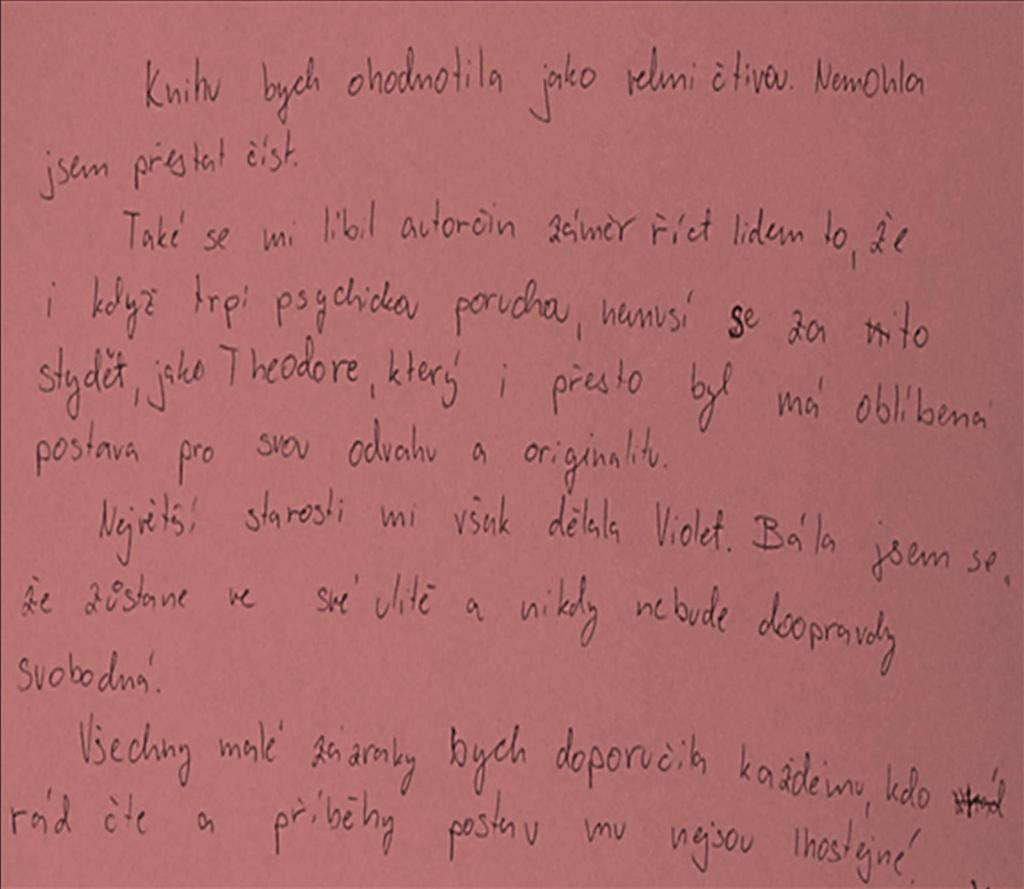 Knihu bych ohodnotila jako velmi čtivou. Nemohla
jsem přestat číst.
Také se mi líbil autorčin záměr říct lidem to, že
i když trpí psychickou poruchou, nemusí se za to
stydět, jako Theodore, který i přesto byl má oblíbená
postava pro svou odvahu a originalitu.
Největší starosti mi však dělala Violet. Bála jsem se,
že zůstane ve své ulitě a nikdy nebude doopravdy
svobodná.
Všechny malé zázraky bych doporučila každému, kdo
rád čte a příběhy postav mu nejsou lhostejné.